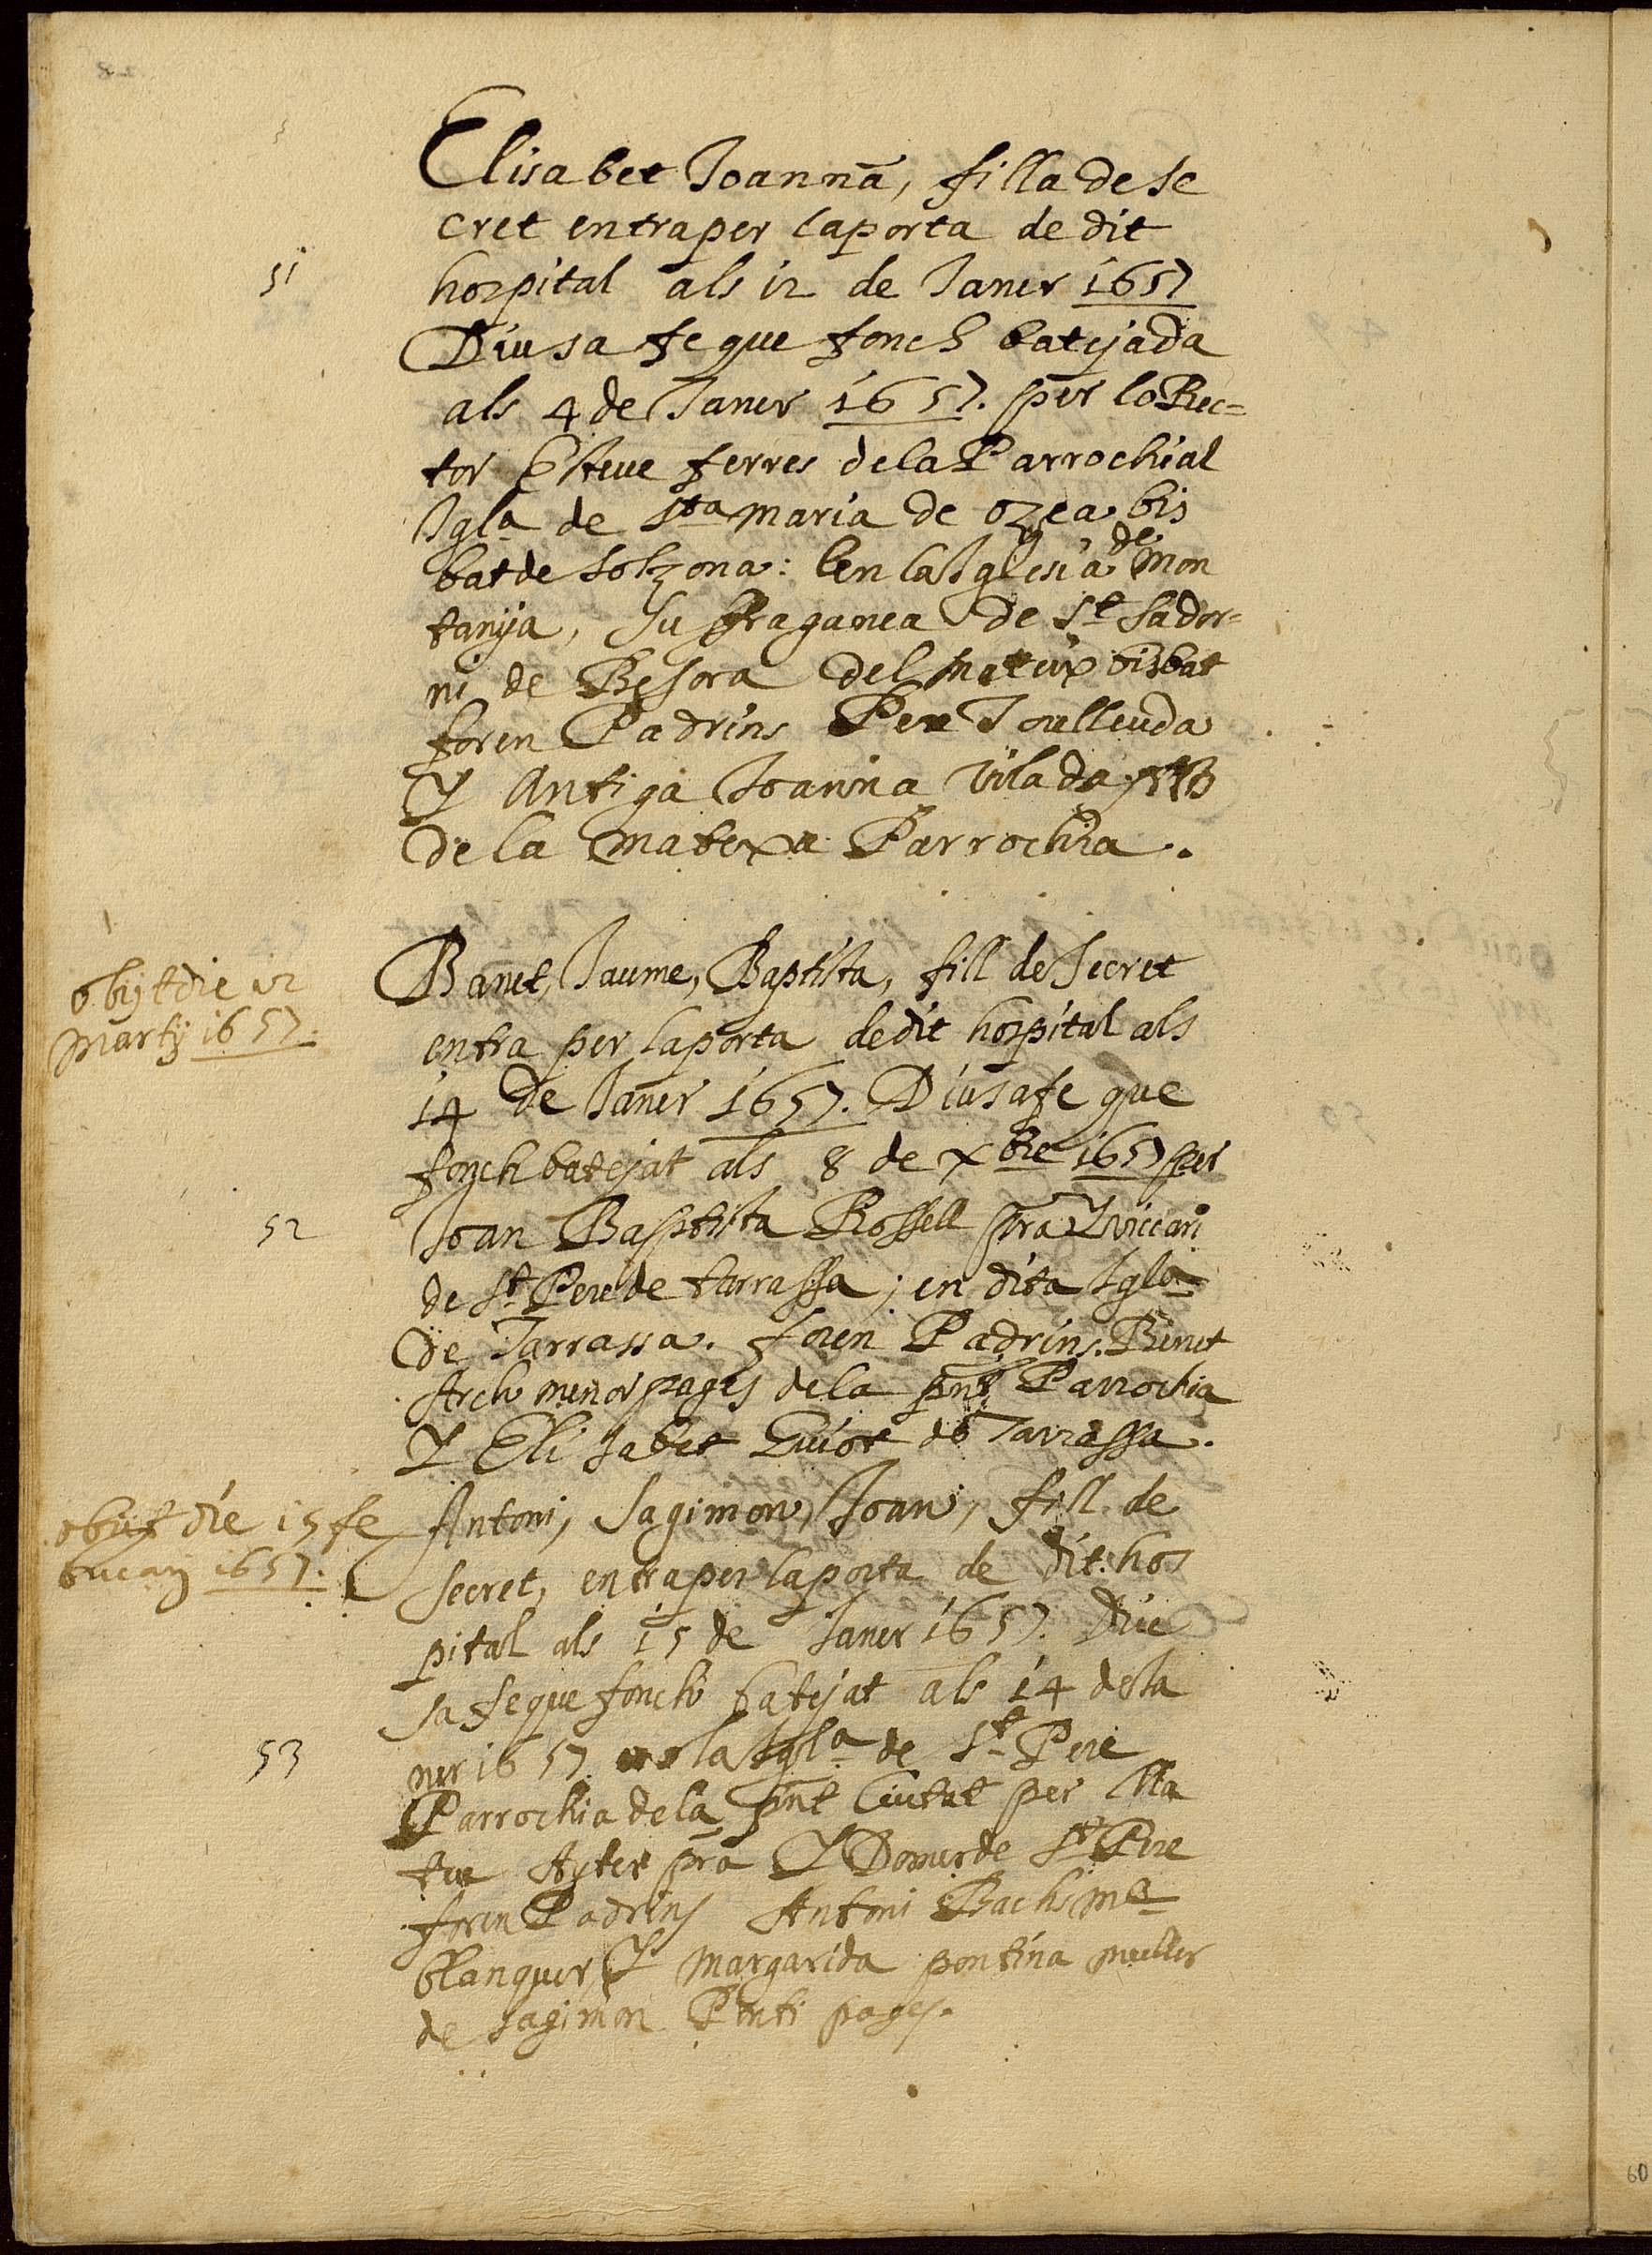 Elisabet Joanna, filla de se
cret entra per la porta de dit
51
hospital als 12 de Janer 1657
Diu sa fe que fonch batejada
als 4 de Janer 1657. per lo Rec=
tor Esteve ferres de la Parrochial
Igla de sta maria de ozea bis
bat de solzona: en la Iglesia de Mon
tanya, sufraganea de St Sador=
ni de Besora del mateix bisbat
foren Padrins Pere Joulleuda
Y Antiga Joanna Vilada
de la matexa Parrochia.
obijt die 12
Martij 1657.
Banet, Jaume, Baptista, fill de secret
entra per la porta de dit hospital als
14 de Janer 1657. Diu sa fe que
fonch batejat als 8 de xbre 1657 per
52
Joan Baptista Rossell pra Y viccari
de St Pere de tarrassa; en dita Igla
de Tarrassa. foren Padrins. Benet
Arch menor pages de la pnt Parrochia
Y Elisabet Guiot de Tarrassa.
obijt die 15 fe
bruarij 1657.
Antoni, Sagimon, Joan, fill de
secret, entra per la porta de dit hos
pital als 15 de Janer 1657. Diu
sa fe que fonch batejat als 14 de Ja
53
ner 1657 en la Igla de St Pere
Parrochia de la pnt Ciutat per Ma
teu Ayter pra Y Domer de St Pere
foren Padrins Antoni Bachs ma
blanquer, Y Margarida pontina muller
de Sagimon Ponti pages.
60